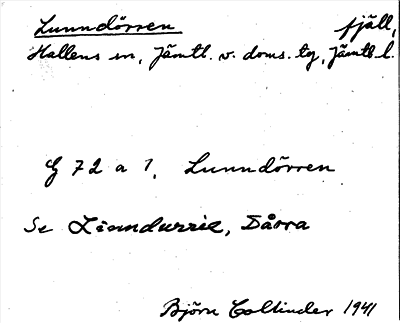 Lunndörren fjäll,
Hallens sn, Jämtl. v. doms. tg, Jämtl. l.
G 72 a 1, Lunndörren
Se Linndurrie, Dårra
Björn Collinder 1941